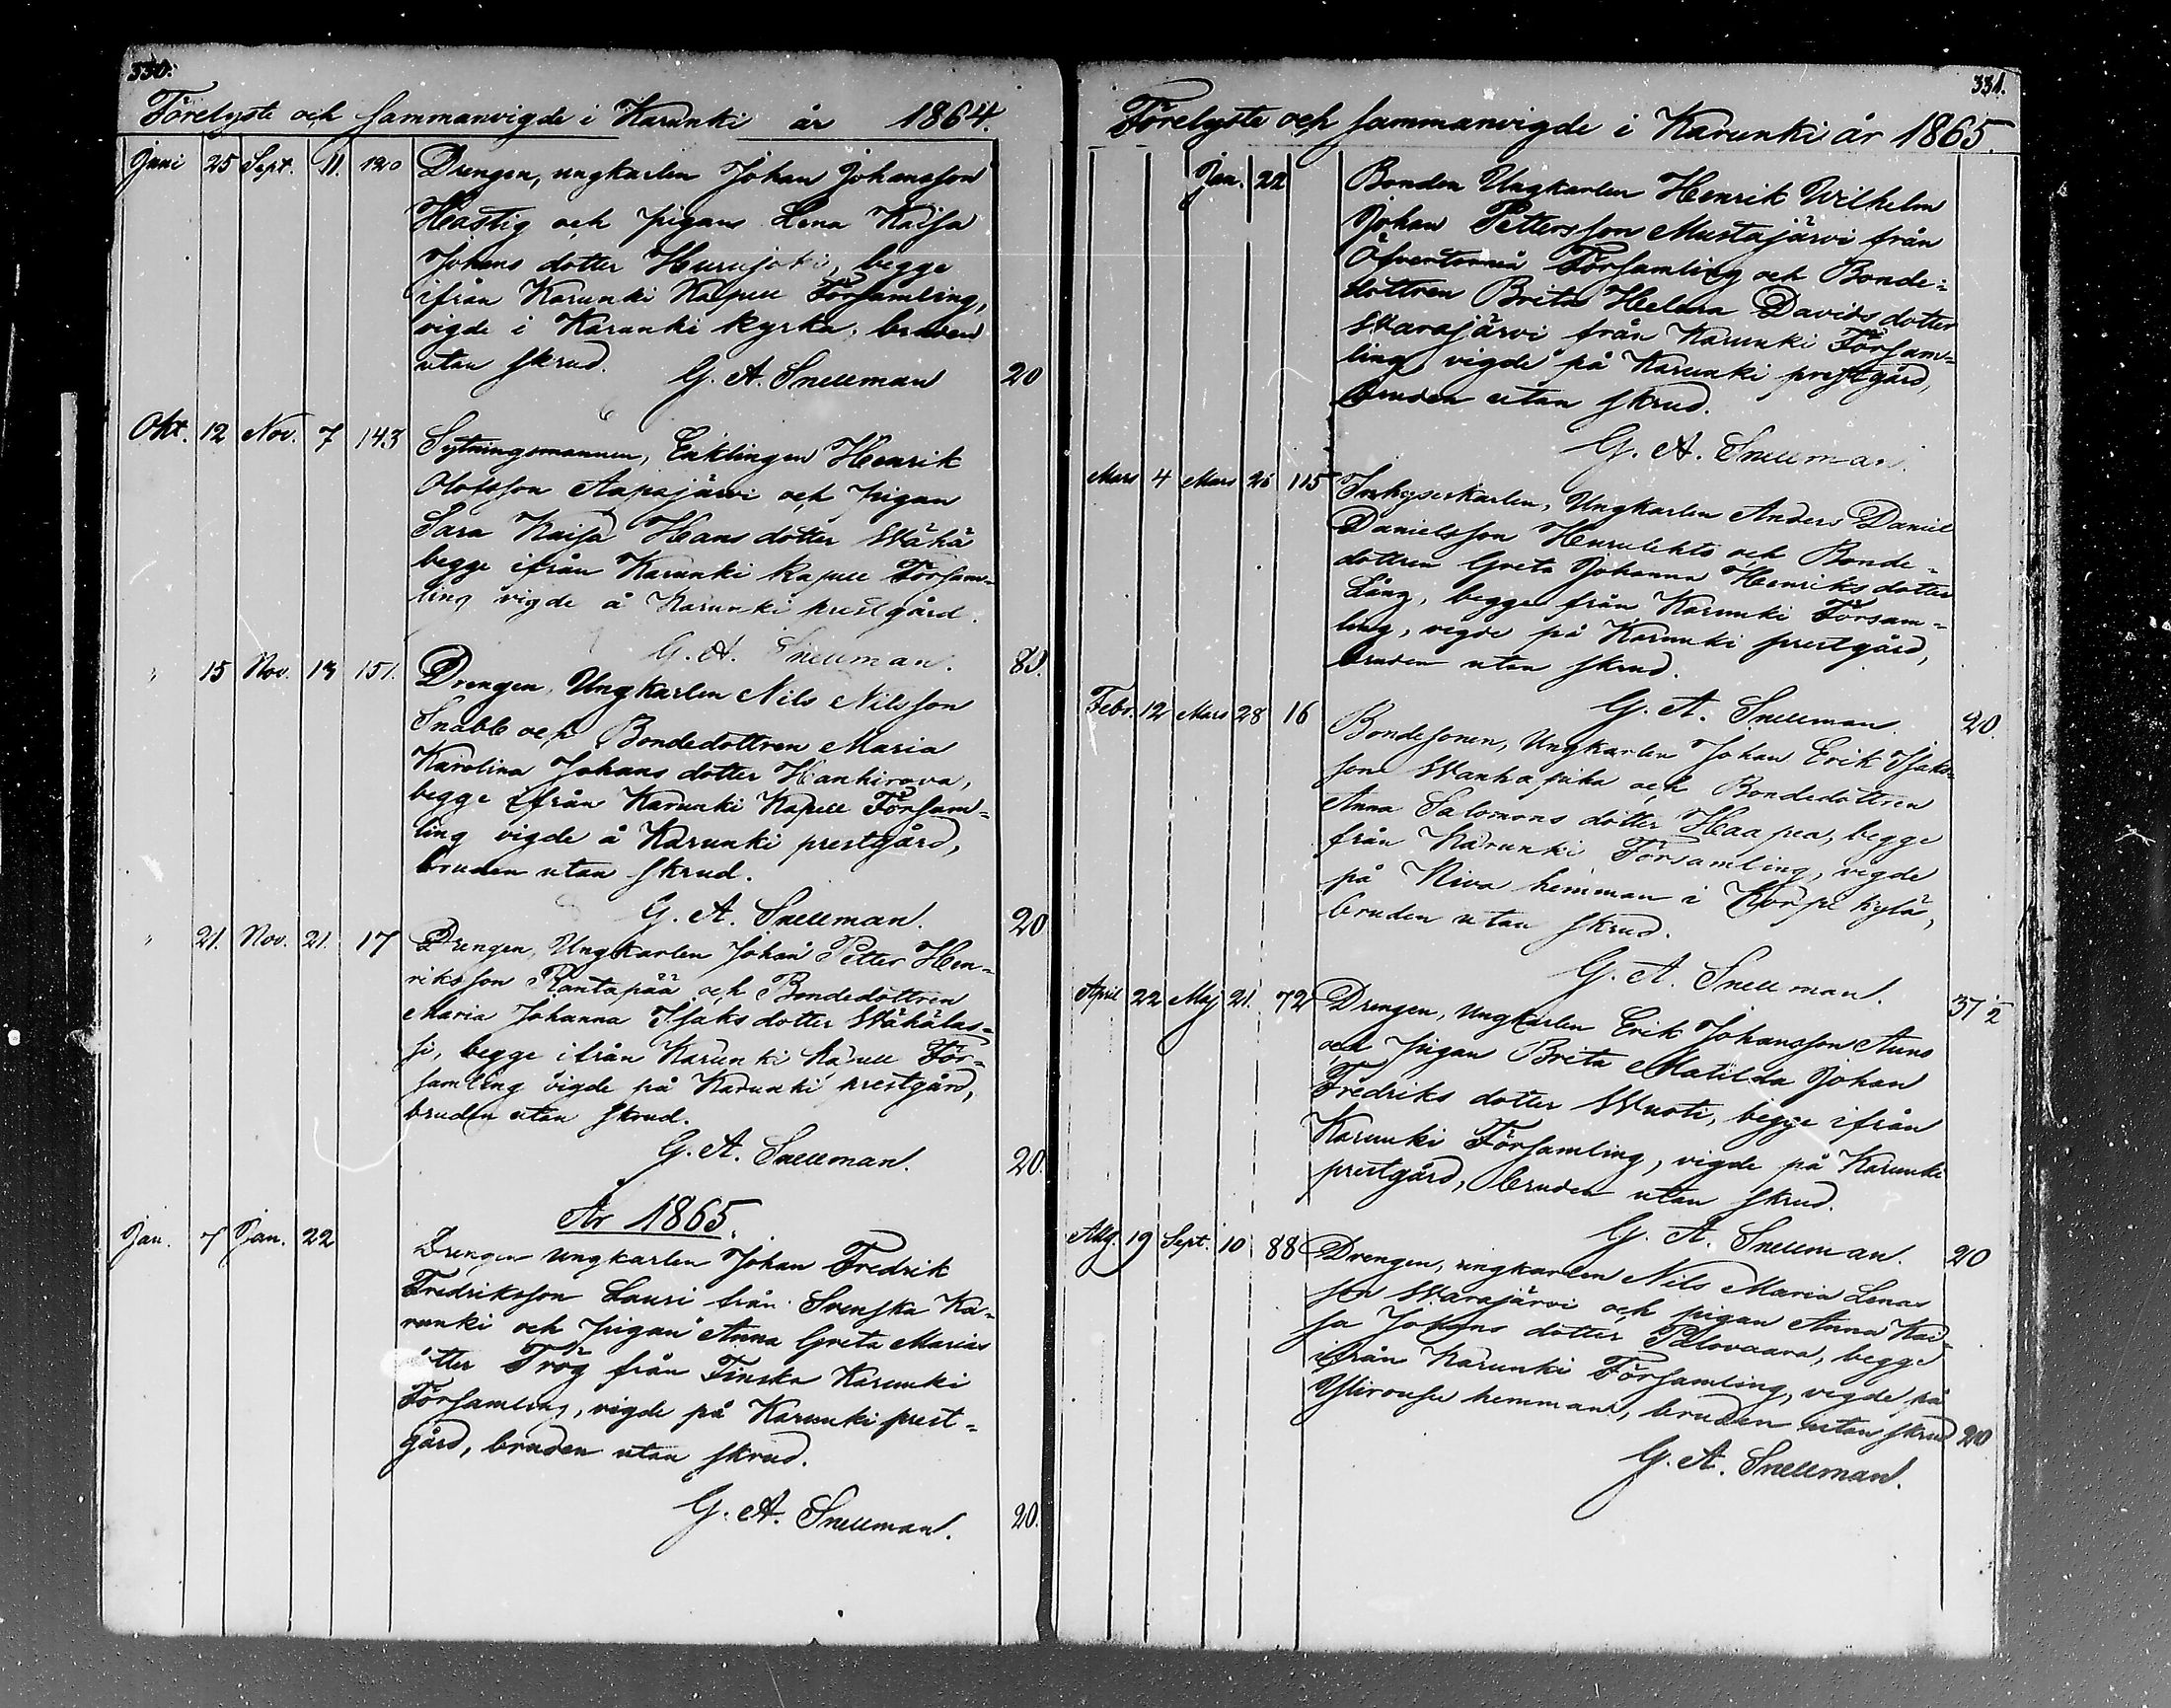 330.
Förelyste och Sammanvigde i Karunki år 1864.
Juni 25 Sept. 11. 120 Drengen, ungkarlen Johan Johansson
Hastig och pigan Lena Kaisa
Johans dotter Hurujoki, begge
ifrån Karunki Kapell Församling,
vigde i Karunki kyrka, bruden
utan skrud. G. A. Snellman 20
Okt. 12 Nov. 7 143 Sytningsmannen, Enklingen Henrik
Olofsson Aapajärvi och pigan
Sara Kaisa Hans dotter Wähä
begge ifrån Karunki Kapell Försam-
ling vigde å Karunki prestgård.
G. A. Snellman. 80.
" 15 Nov. 13 151. Drengen, Ungkarlen Nils Nilsson
Snabb och Bondedottren Maria
Karolina Johans dotter Hankirova,
begge ifrån Karunki Kapell Försam=
ling vigde å Karunki prestgård,
bruden utan skrud.
G. A. Snellman. 20
" 21. Nov. 21. 17 Drengen, Ungkarlen Johan Petter Hen-
riksson Rantapää och Bondedottren
Maria Johanna Isaks dotter Wähälas=
si, begge ifrån Karunki Kapell För-
samling vigde på Karunki prestgård,
bruden utan skrud.
G. A. Snellman. 20.
År 1865.
Jan. 7 Jan. 22 Drengen ungkarlen Johan Fredrik
Fredriksson Lauri från Svenska Ka-
runki och pigan Anna Greta Marias
dotter Trög från Finska Karunki
Församling, vigde på Karunki prest-
gård, bruden utan skrud.
G. A. Snellman. 20.
331.
Förelyste och sammanvigde i Karunki år 1865.
Jan. 22 Bonden Ungkarlen Henrik Wilhelm
Johan Pettersson Mustajärvi från
Öfvertorneå Församling och Bonde=
dottren Brita Helena Davids dotter
Warajärvi från Karunki Försam=
ling vigde på Karunki prestgård,
bruden utan skrud.
G. A. Snellman.
Mars 4 Mars 26 115 Inhyseskarlen, Ungkarlen Anders Daniel
Danielsson Hurulehto och Bonde-
dottren Greta Johanna Henriks dotter
Lång, begge från Karunki Försam-
ling, vigde på Karunki prestgård,
bruden utan skrud.
G. A. Snellman. 20
Febr. 12 Mars 28 16 Bondesonen, Ungkarlen Johan Erik Isaks
son Wanhapiha och Bondedottren
Anna Salomons dotter Haapea, begge
från Karunki Församling, vigde
på Niva hemman i Korpikylä,
bruden utan skrud.
G. A. Snellman. 37 1/2
April 22 Maj 21. 72 Drengen, Ungkarlen Erik Johansson Auno
och pigan Brita Matilda Johan
Fredriks dotter Wuoti, begge ifrån
Karunki Församling, vigde på Karunki
prestgård, bruden utan skrud.
G. A. Snellman. 20
Aug. 19 Sept. 10 88 Drengen, ungkarlen Nils Maria Lenas
son Warajärvi och pigan Anna Kai-
sa Johans dotter Palovaara, begge
ifrån Karunki Församling, vigde på
hemman, bruden utan skrud 20
G. A. Snellman.